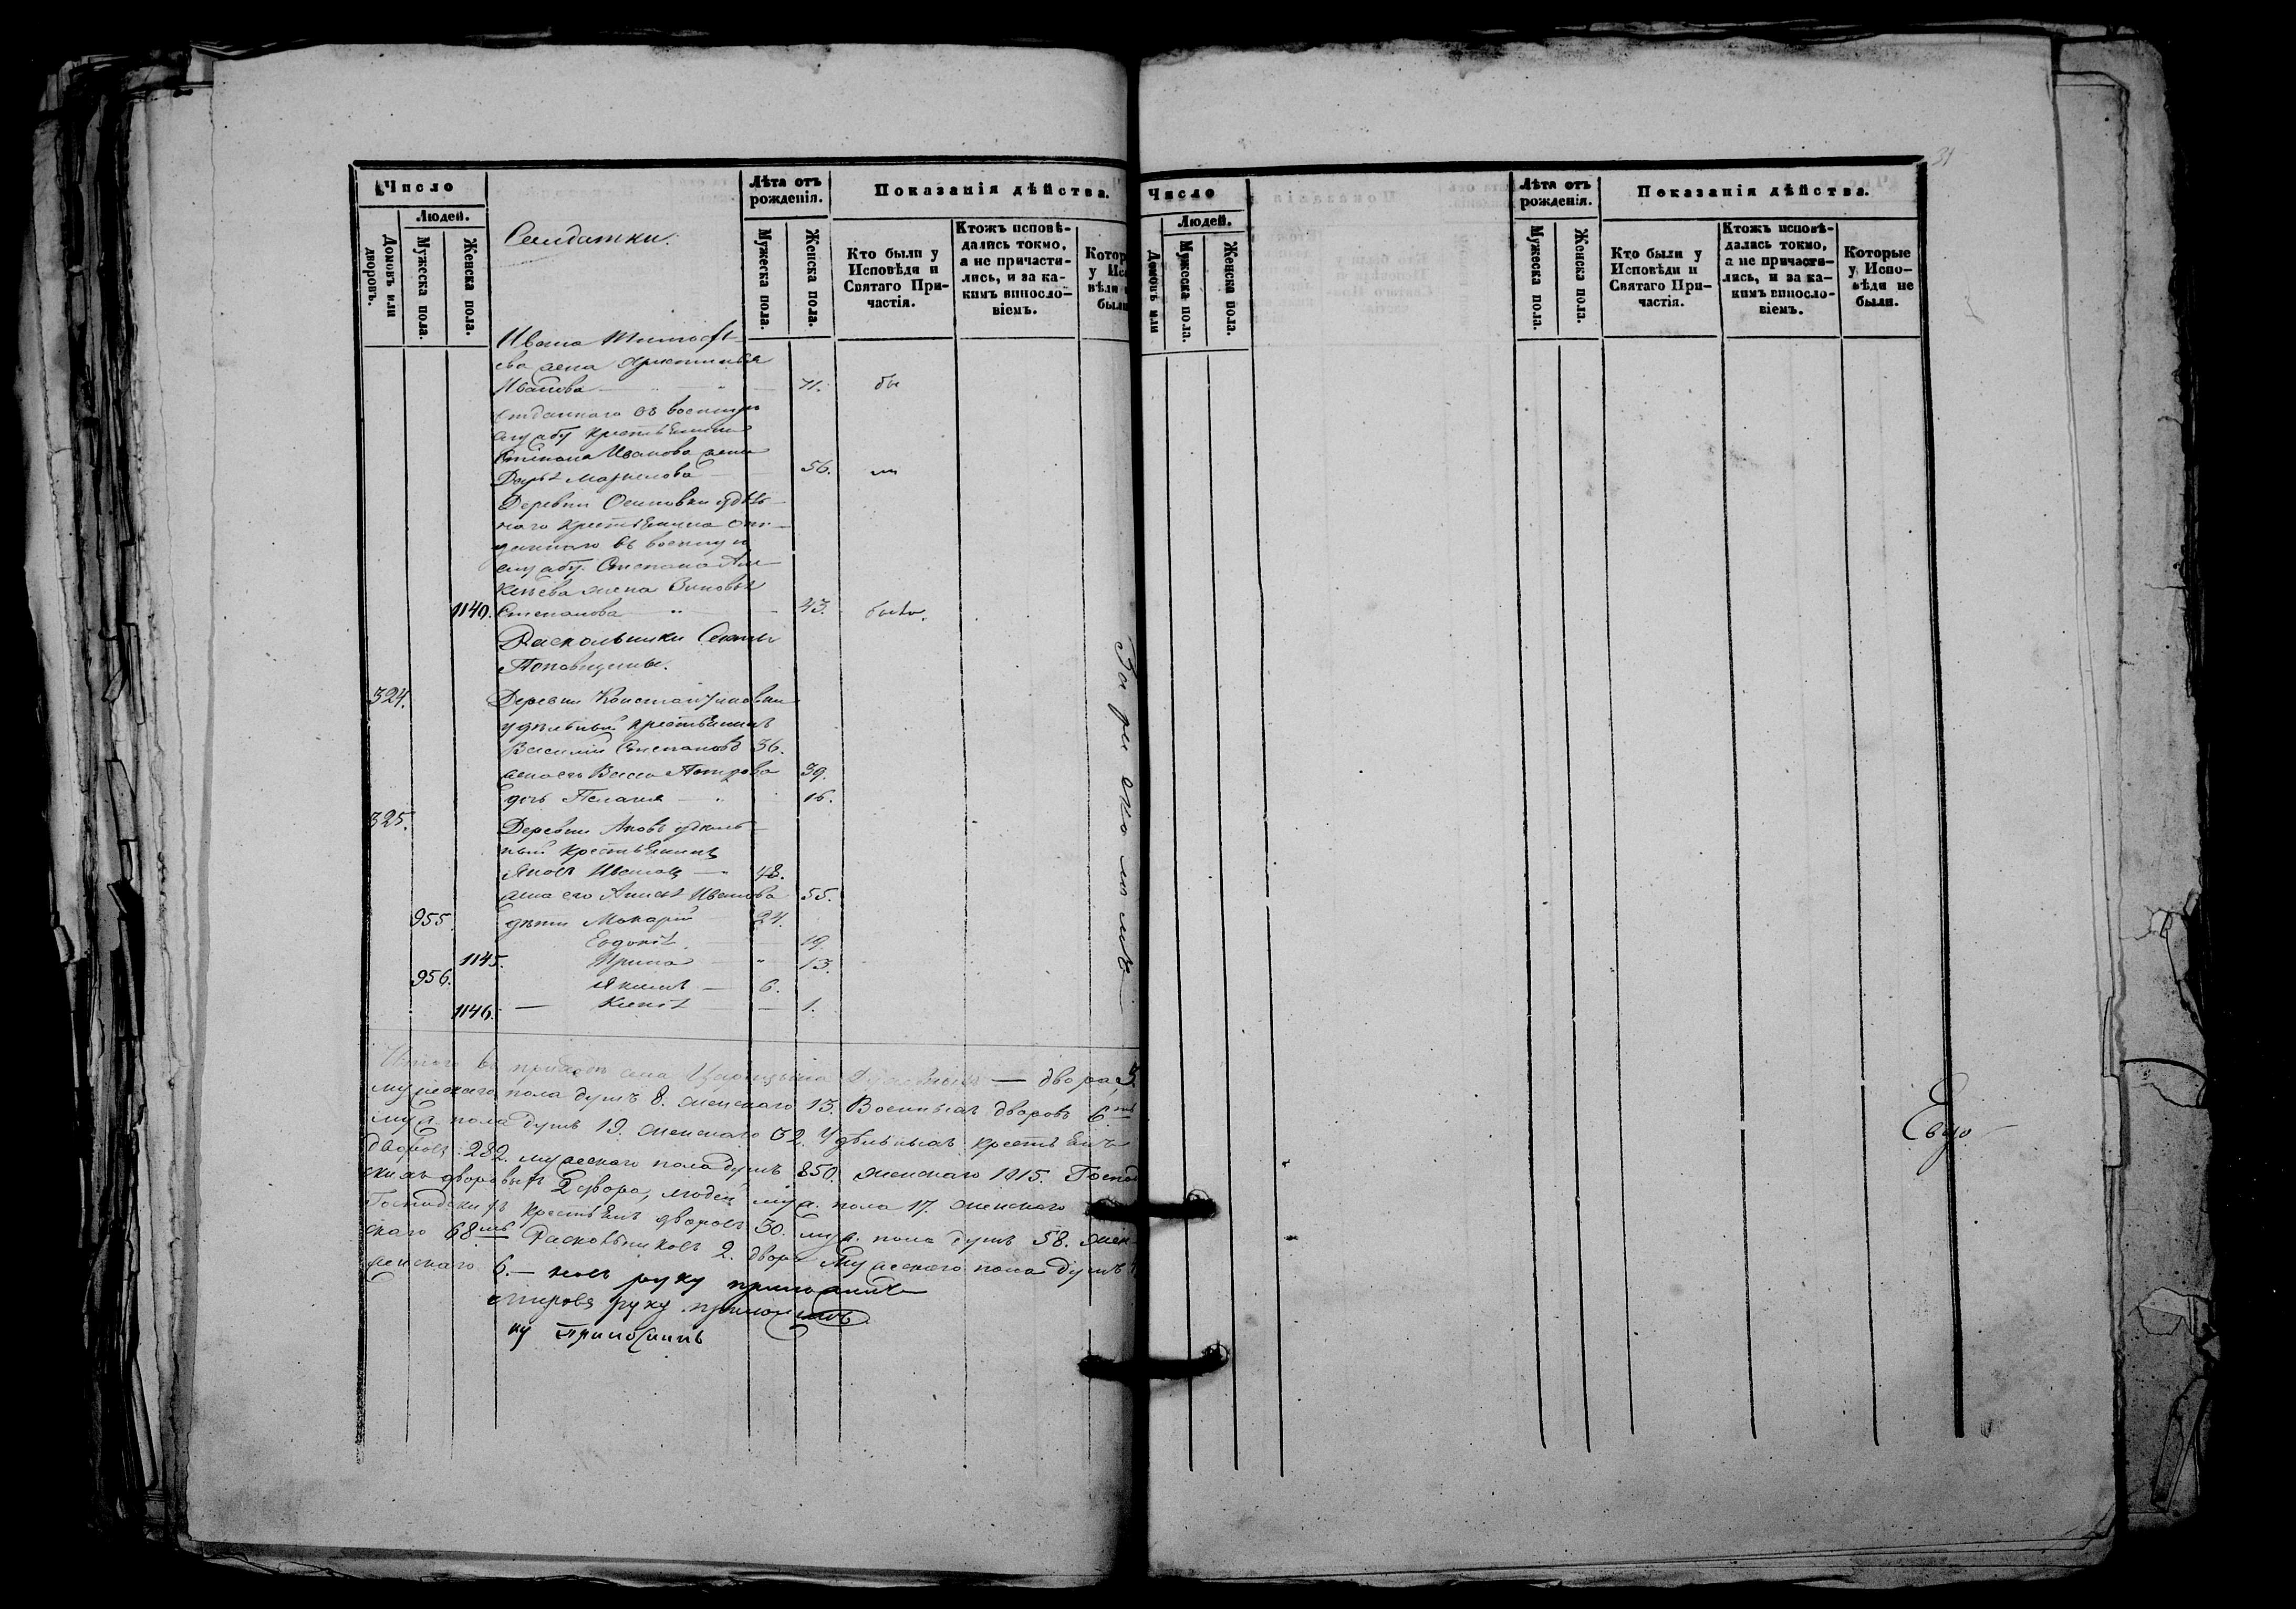 31
Число
Людей.
Домовъ или дворовъ.
Мужеска пола.
Женска пола.
Солдатки.
Лѣта отъ рожденія.
Мужеска пола.
Женска пола.
Показанія дѣйства.
Кто были у Исповѣди и Святаго Причастія.
Ктожъ исповѣ-
дались токмо,
а не причасти-
лись, и за ка-
кимъ винос­ло-
віемъ.
Котор
у Исп
вѣди
были
Ивана Тимофѣ-
ева жена Христинья
Иванова 71. бы
отданнаго въ военную
службу крестьянина
Степана Иванова жена
Дарья Маркелова 56. ли
Деревни Осиновки удѣль-
наго крестьянина от-
даннаго въ военную
службу Степана Али-
кеѣва жена Зиновья
1140. Степанова 43. была.
Раскольники Секты
Поповщины.
324. Деревни Константиновки
удѣльный крестьянинъ
Василій Степановъ 36.
жена его Васса Петрова 39.
дочь Пелагея 16.
325. Деревни удѣль-
ный крестьянинъ
Яковъ Ивановъ 48.
жена его Анисья Иванова 55.
955. дѣти Макарій 24.
Евдокія 19.
1145. Ирина 13.
956. Якимъ 6.
1146. Ксенія 1.
Итого въ приходѣ села Царицына Духовныхъ — двора 3.
мужескаго пола душъ 8. женскаго 13. Военныхъ дворовъ 6ть
муж. пола душъ 19. женскаго 32. Удѣльныхъ крестьянъ
дворовъ 282. мужескаго пола душъ 850. женскаго 1015. Господ
скихъ дворовыхъ 2 двора, людей муж. пола 17. женскаго
Господскихъ крестьянъ дворовъ 30. муж. пола душъ 58. жен-
скаго 68мь Раскольниковъ 2. двора Мужескаго пола душъ 4
женскаго 6. — ковъ руку приложилъ
руку приложилъ
ку приложилъ
Число
Людей.
Домовъ или
Мужеска пола.
Женска пола.
Лѣта отъ рожденія.
Мужеска пола.
Женска пола.
Показанія дѣйства.
Кто были у Исповѣди и Святаго Причастія.
Ктожъ исповѣ-
дались токмо,
а не причасти-
лись, и за ка-
кимъ винос­ло-
віемъ.
Которые
у Испо-
вѣди не
были.